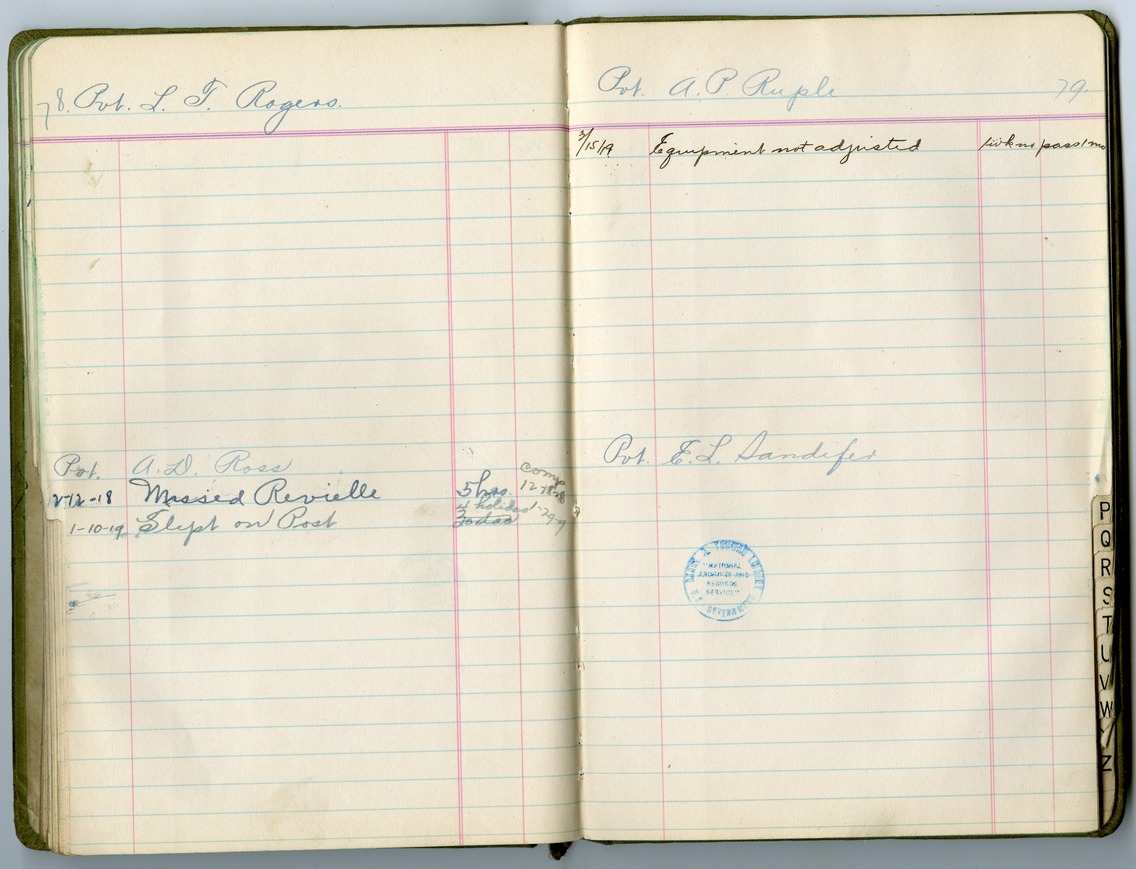 78. Pvt. L. T. Rogers.
Pvt. A. D. Ross
12-12-18 Missed Revielle 5 hrs. Comp 12-18-18
1-10-19 Slept on Post 4 holidas 1-29-19
Pvt. A. P. Ruple 79.
3/15/19 Equipment not adjusted 1 wk no pass 1 mo
Pvt. E. L. Sandifer
HARRY S. TRUMAN LIBRARY
"NATIONAL
ARCHIVES AND
RECORDS
SERVICE"
U.S. GOVERNMENT
P
Q
R
S
T
U
V
W
Z